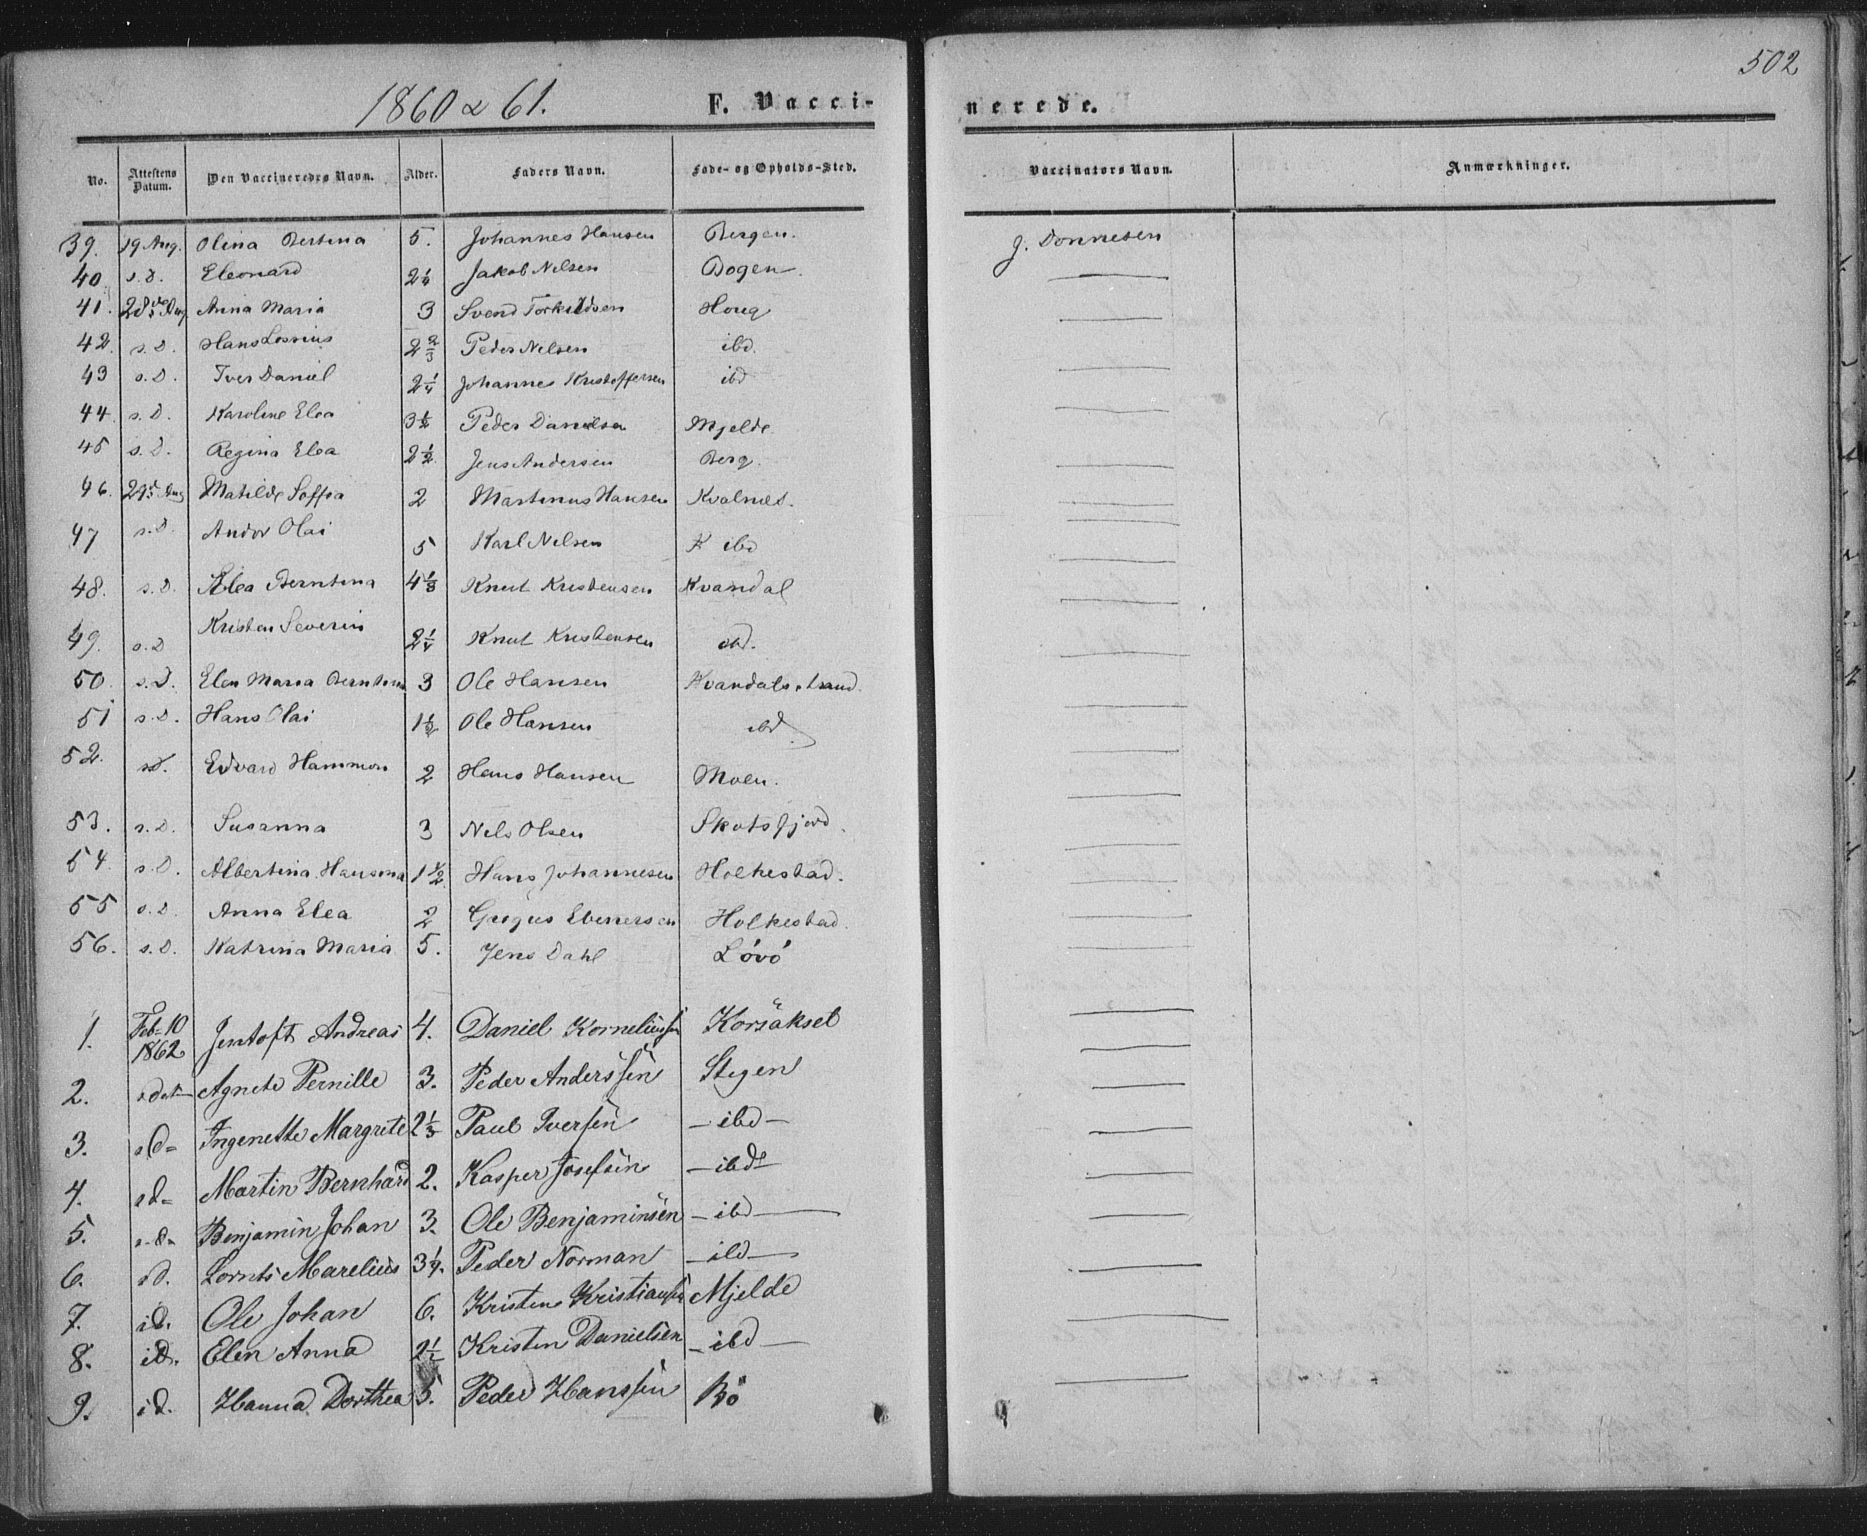 502
1860 & 61. F. Vacci- nerede.
No. Attestens Datum. Den Vaccineredes Navn. Alder. Faders Navn. Føde- og Opholds-Sted. Vaccinators Navn. Anmærkninger.
39. 19 Aug. Olina Bertina 5. Johannes Hansen Bergen. J. Donnesen
40. s. d. Eleonard 2¼ Jakob Nilsen Bogen. —
41. 28de Aug Anna Maria 3 Svend Torkildsen Houg —
42. s. d. Hans Lossius 2⅔ Peder Nilsen ibd. —
43 s. d. Iver Daniel 2¼ Johannes Kristoffersen ibd —
44. s. d. Karoline Elea 3½ Peder Danielsen Mjelde —
45 s. d. Regina Elea 2½ Jens Andersen Berg. —
46. 29de Aug Matilde Soffia 2 Martinus Hansen Kvalnes. —
47 s. d. Andor Olai 5 Karl Nilsen ibd —
48. s. d. Elea Berntina 4⅓ Knut Kristensen Kvandal —
49. s. d Kristen Severin 2¼ Knut Kristensen ibd. —
50. s. d. Elen Maria Berntina 3 Ole Hansen Kvandalsstrand. —
51 s. d. Hans Olai 1½ Ole Hansen ibd. —
52. sd. Edvard Hammon 2 Hans Hansen Moen. —
53. s. d. Susanna 3 Nils Olsen Skotsfjord. —
54. s. d. Albertina Hansina 1½ Hans Johannesen Holkestad. —
55 s. d. Anna Elea 2 Grigus Ebenersen Holkestad. —
56. s. d. Katrina Maria 5. Jens Dahl Lövö —
1. Feb. 10 1862 Jentoft Andreas 4. Daniel Korneliussen Korsåkset —
2. sdat Agnete Pernille 3. Peder Anderssen Stegen —
3. sd Ingenette Margrete 2⅓ Paul Iversen — ibd — —
4. sd Martin Bernhard 2. Kasper Josefsen — ibd —
5. s.d. Benjamin Johan 3. Ole Benjaminsen — ibd — —
6. sd. Lornts Marelius 3¼. Peder Norman — ibd — —
7. id. Ole Johan 6. Kristen Kristiansen Mjelde —
8. id. Elen Anna 2½ Kristen Danielsen — ibd — —
9. id. Hanna Dorthea 5. Peder Hanssen Bö —